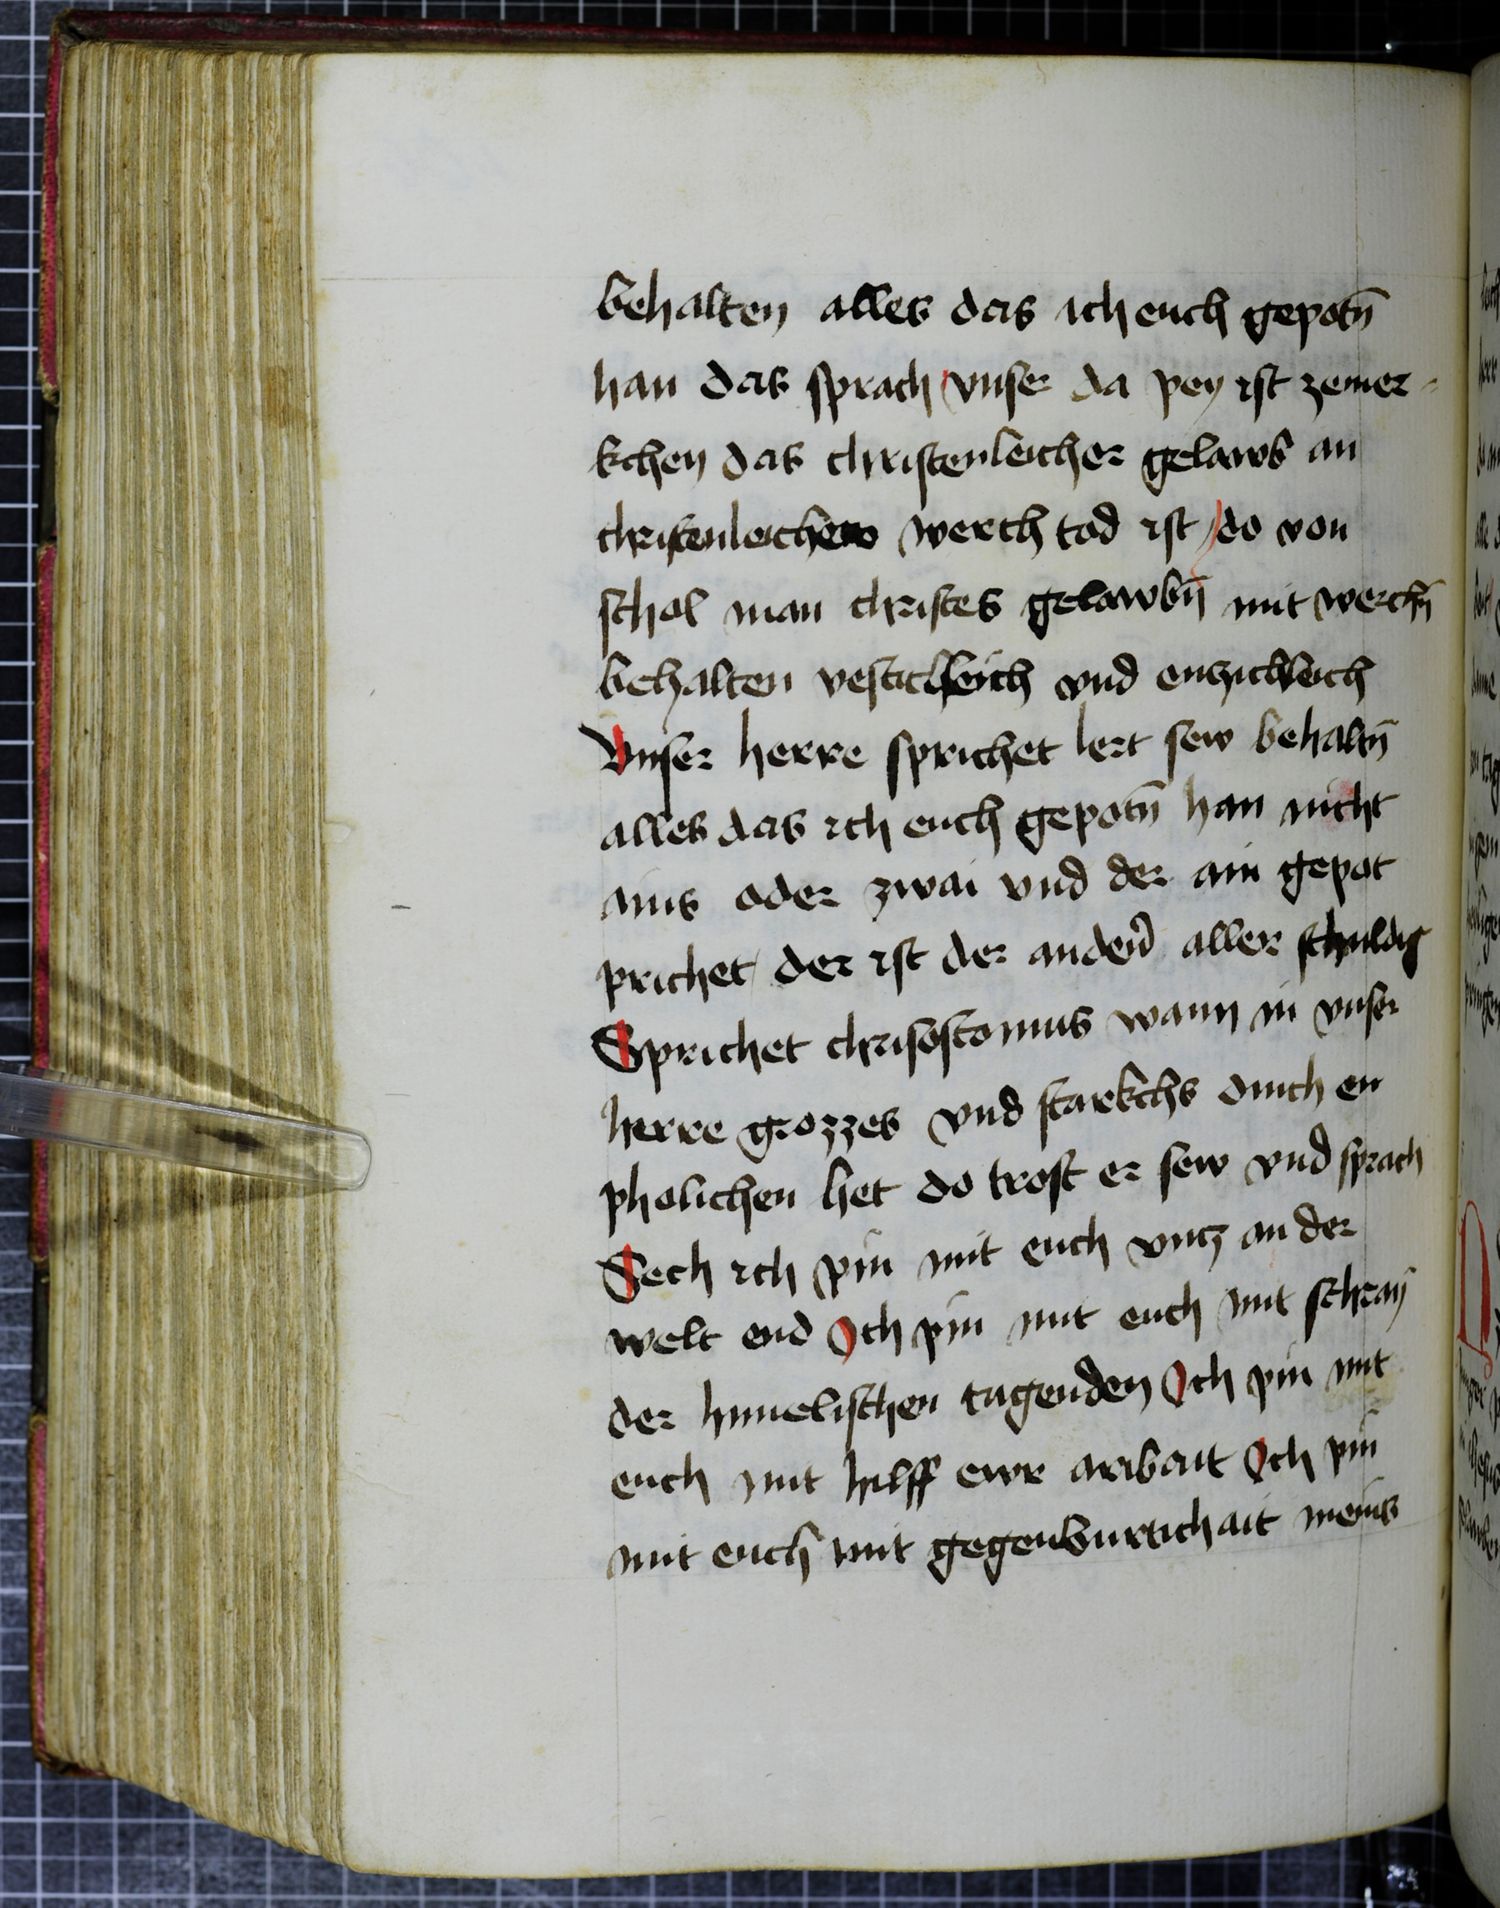 behalten alles das ich euch gepotn̄
han das sprach vnser da pey ist zemer-
kchen das christenleicher gelawb an
christenleichew werch tod ist / do von
schol man christes gelawbn̄ mit werchn̄
behalten vesticleich vnd enczichleich
Vnser herre sprichet lert sew behaltn̄
alles das ich euch gepotn̄ han nicht
ains oder zwai vnd der ain gepot
prichet / der ist der andern̄ aller schuldig
Sprichet chrisostomus wann in vnser
herre grozzes vnd starkchs durch en
pholichen het do trost er sew vnd sprach
Sech ich pin mit euch vncz an der
welt end Ich pin mit euch mit schray
der himelischen tugenden Ich pin mit
euch mit hilff ewr arbait Ich pin
mit euch mit gegenburtichait meins